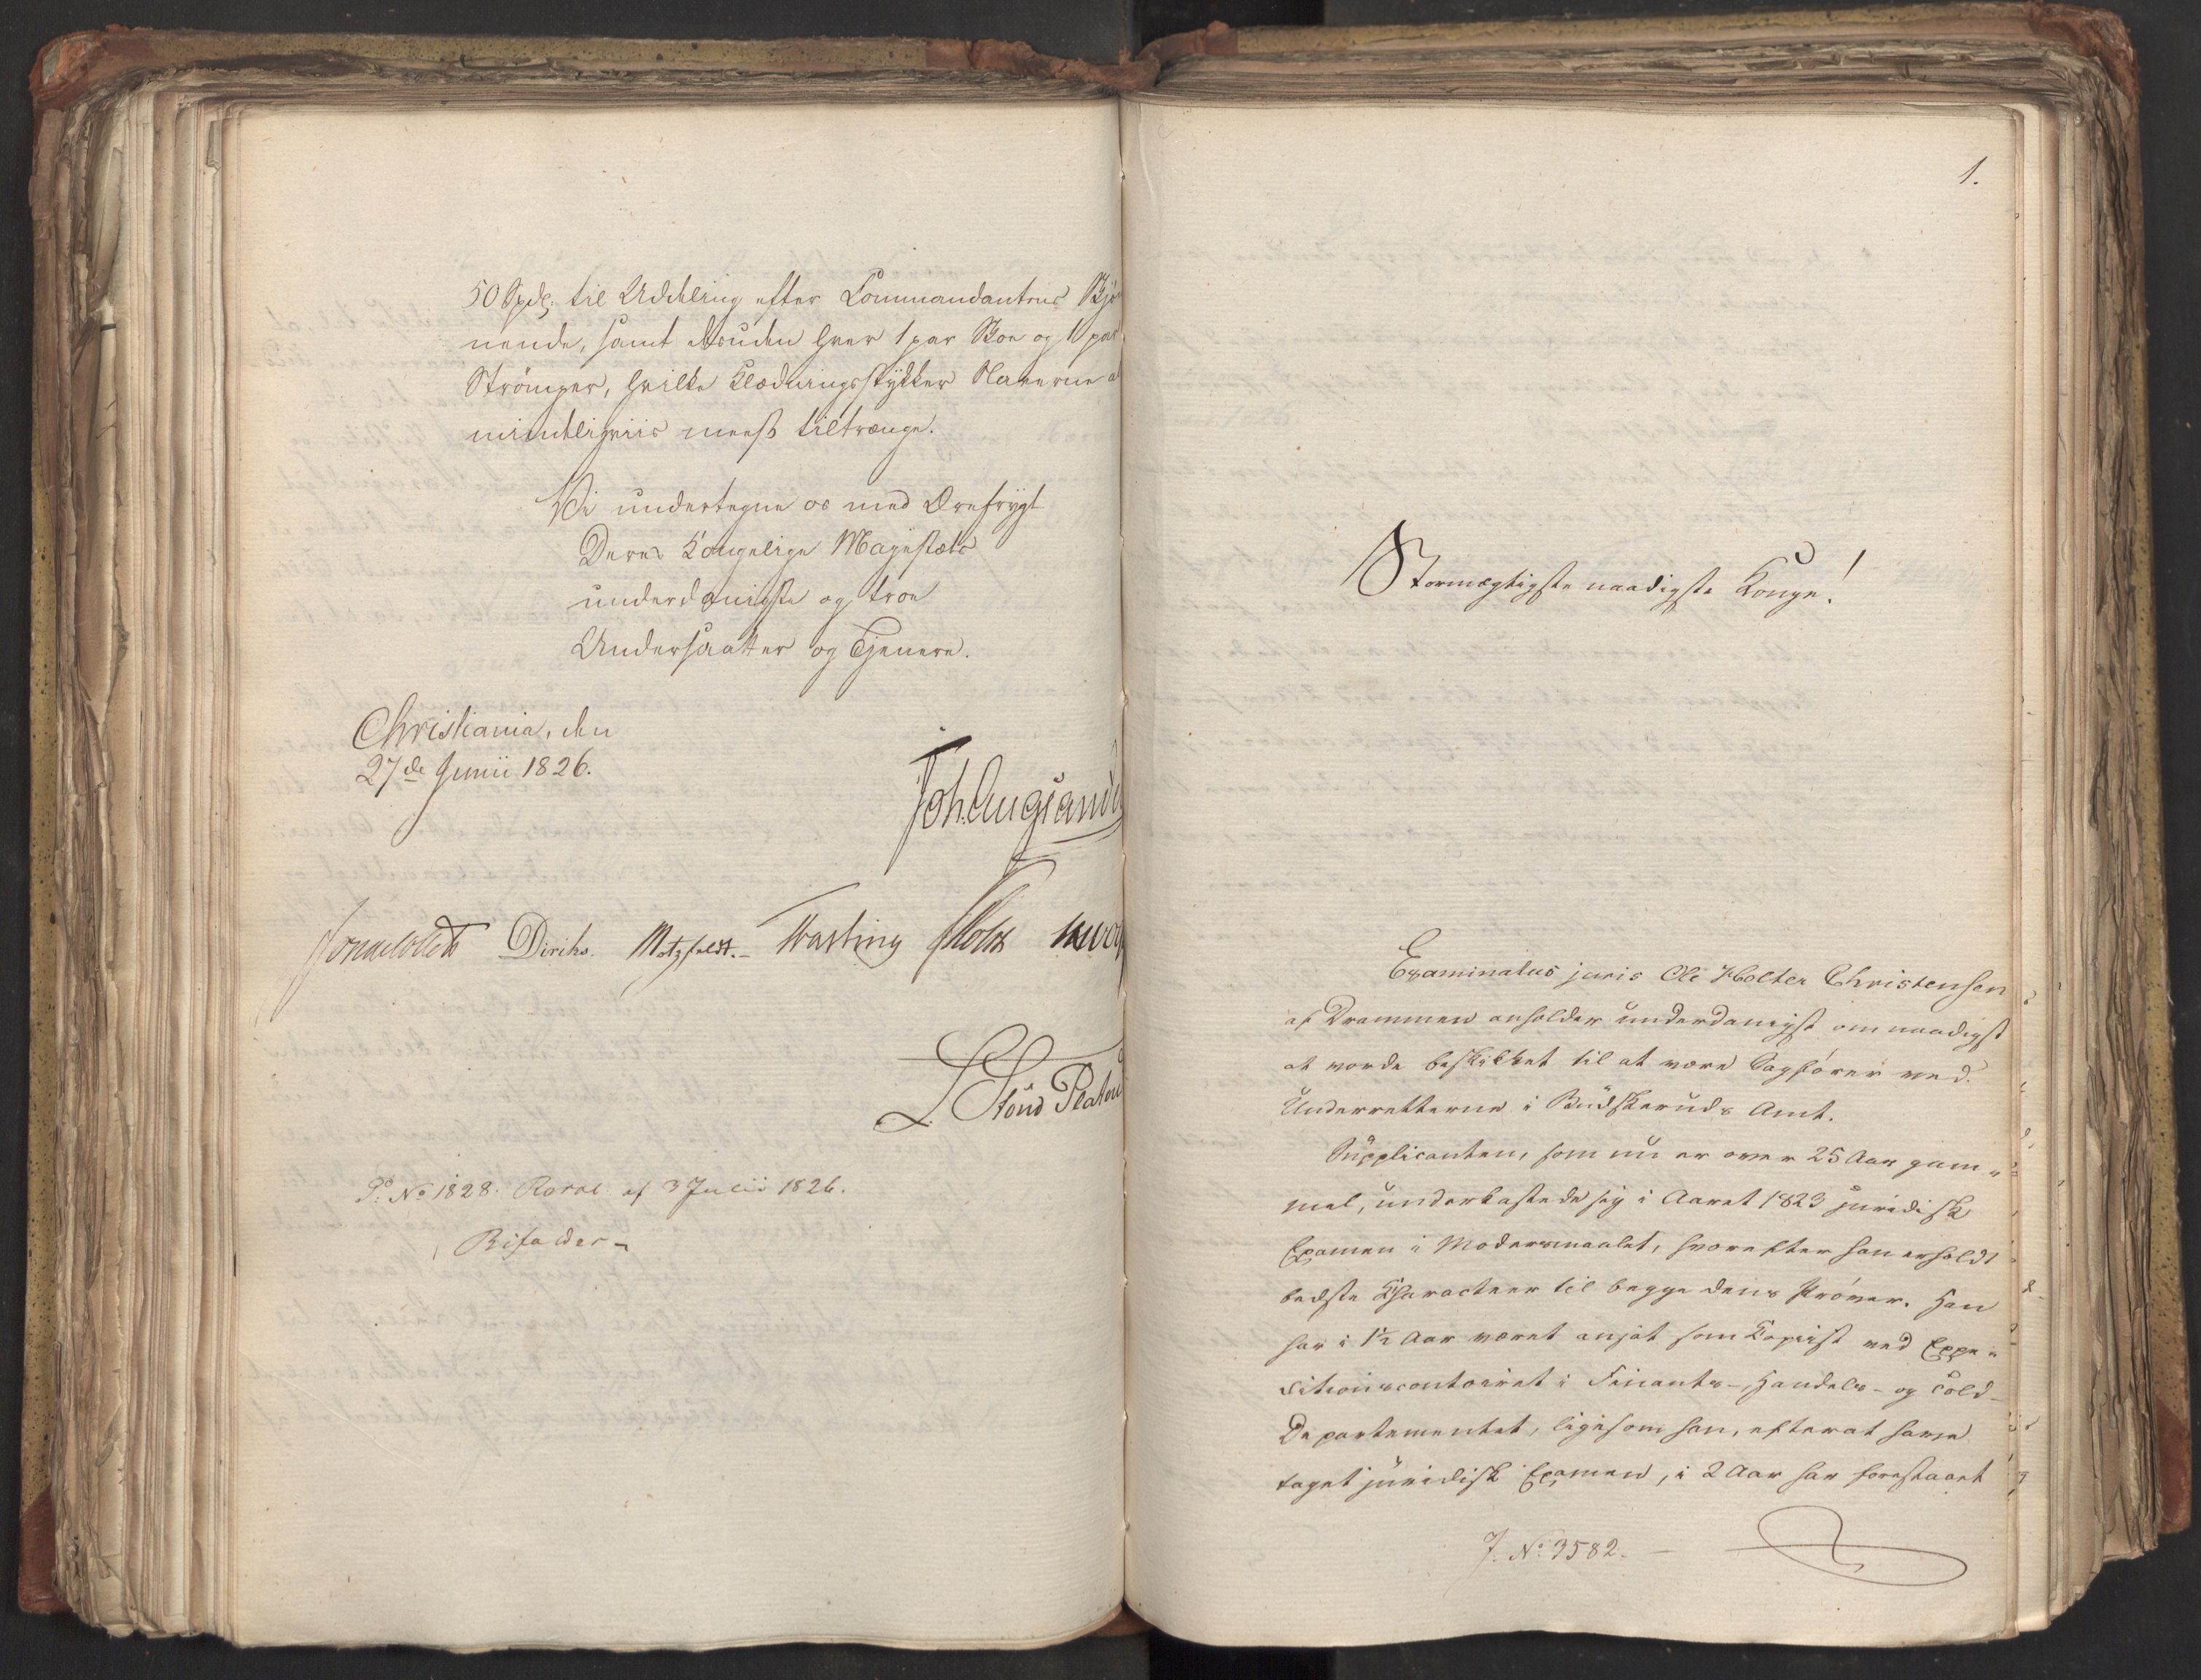 50 Spdl. til Uddeling efter Commandantens Skjøn
nende, samt desuden hver 1 par Skoe og 1 par
Strömper, hvilke Klædningsstykker Slaverne al
mindeligviis meest tiltrænge.
Vi undertegne os med Ærefrygt
Deres Kongelige Majestæts
underdanigste og troe
Undersaatter og Tjenere.
Christiania, den
27de Junii 1826.
Joh. Aug Sande
Diriks. Motzfeldt. Fasting Holst
L. Stoud Platou
No 1828. Resol. af 3 Julii 1826.
Bifaldes
1.
Stormægtigste naadigste Konge!
Examinatus juris Ole Holter Christensen
af Drammen anholder underdanigst om naadigst
at vorde beskikket til at være Sagförer ved
Underretterne i Budskeruds Amt.
Supplicanten, som nu er over 25 Aar gam„
mel, underkastede sig i Aaret 1823 juridisk
Examen i Modersmaalet, hvorefter han erholdt
bedste Characteer til begge dens Pröver. Han
har i 1½ Aar været ansat som Kopiist ved Expe„
ditionscontoiret i Finants-, Handels- og Told-
Departementet, ligesom han, efterat have
taget juridisk Examen, i 2 Aar har forestaaet
J. No 3582.